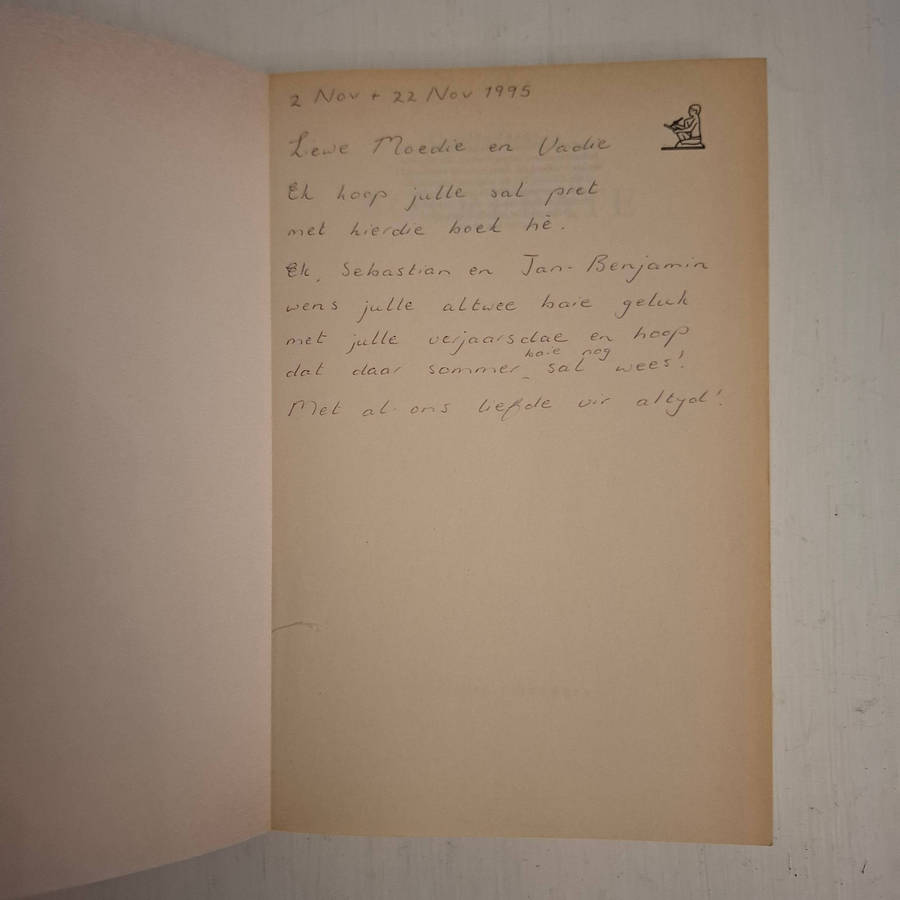 2 Nov + 22 Nov 1995
Lewe Moedie en Vadie
Ek hoop julle sal pret
met hierdie boek hê.
Ek, Sebastian en Jan-Benjamin
wens julle altwee baie geluk
met julle verjaarsdae en hoop
dat daar sommer baie nog sal wees!
Met al ons liefde vir altyd!